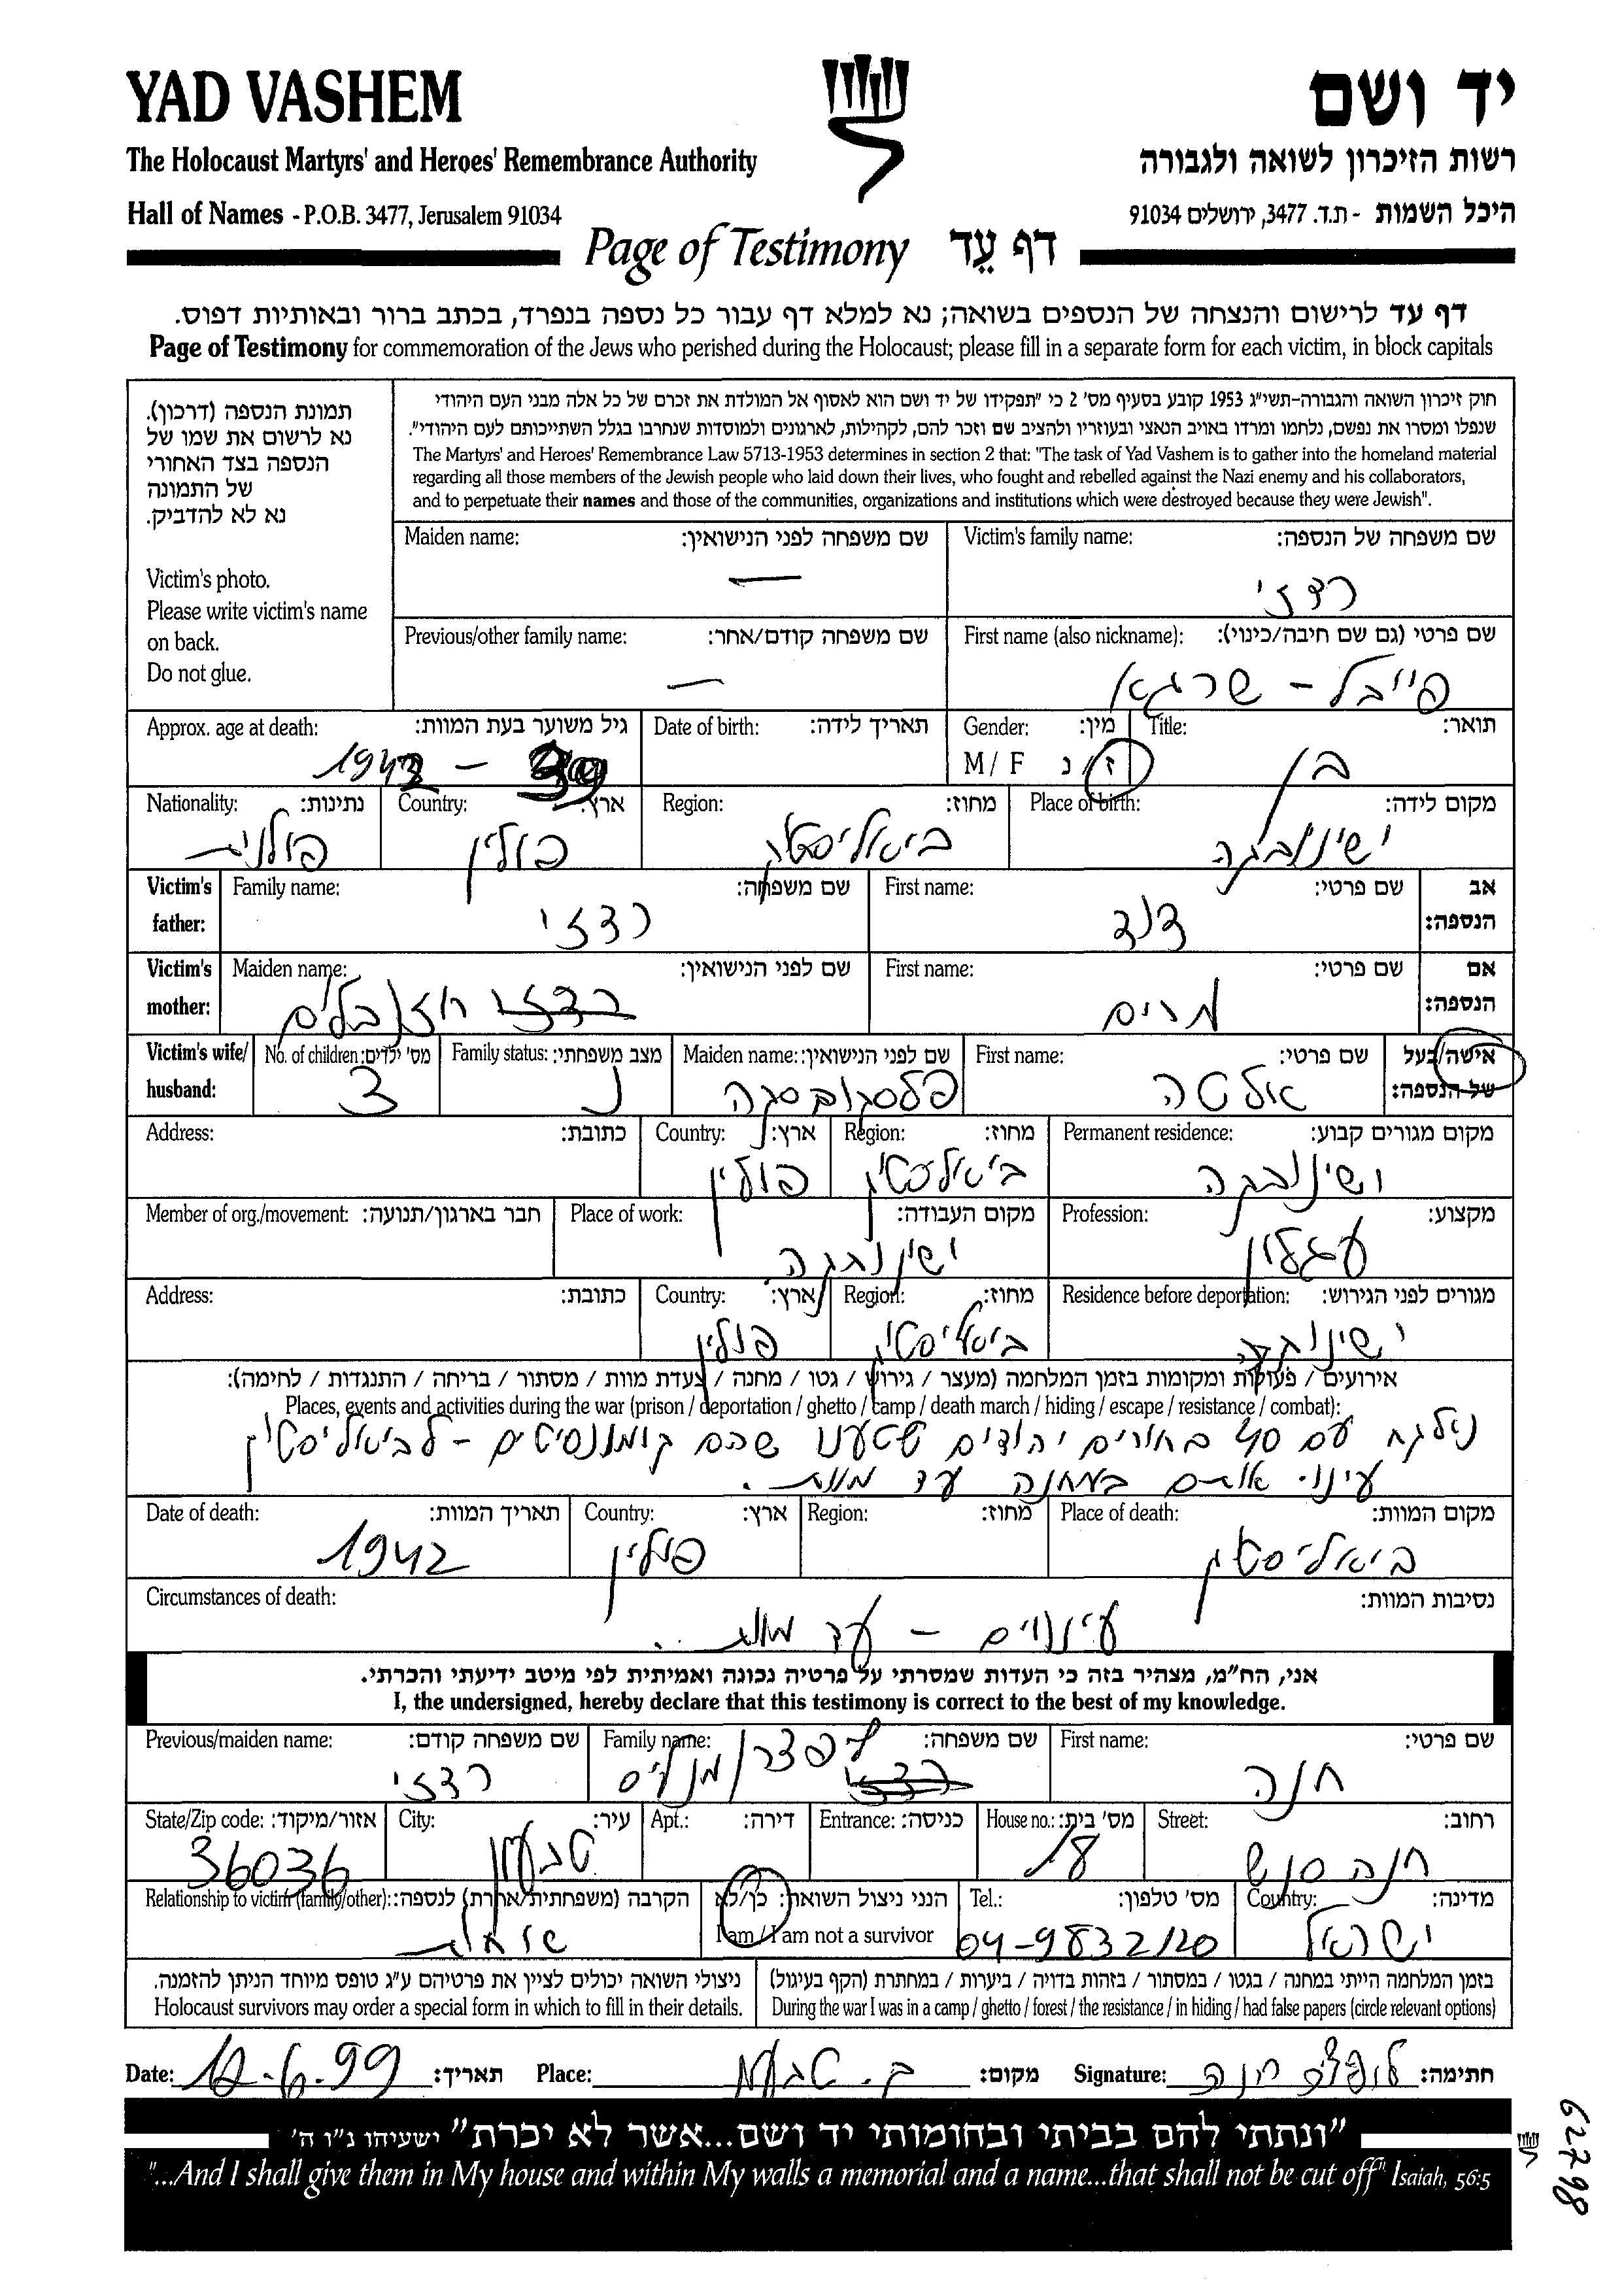 YAD VASHEM
יד ושם
The Holocaust Martyrs' and Heroes' Remembrance Authority
רשות הזיכרון לשואה ולגבורה
Hall of Names - P.O.B. 3477, Jerusalem 91034
היכל השמות - ת.ד. 3477, ירושלים 91034
Page of Testimony דף עֵד
דף עד לרישום והנצחה של הנספים בשואה; נא למלא דף עבור כל נספה בנפרד, בכתב ברור ובאותיות דפוס.
Page of Testimony for commemoration of the Jews who perished during the Holocaust; please fill in a separate form for each victim, in block capitals
תמונת הנספה (דרכון).
נא לרשום את שמו של
הנספה בצד האחורי
של התמונה
נא לא להדביק.
Victim's photo.
Please write victim's name
on back.
Do not glue.
חוק זיכרון השואה והגבורה-תשי"ג 1953 קובע בסעיף מס' 2 כי "תפקידו של יד ושם הוא לאסוף אל המולדת את זכרם של כל אלה מבני העם היהודי
שנפלו ומסרו את נפשם, נלחמו ומרדו באויב הנאצי ובעוזריו ולהציב שם וזכר להם, לקהילות, לארגונים ולמוסדות שנחרבו בגלל השתייכותם לעם היהודי".
The Martyrs' and Heroes' Remembrance Law 5713-1953 determines in section 2 that: "The task of Yad Vashem is to gather into the homeland material
regarding all those members of the Jewish people who laid down their lives, who fought and rebelled against the Nazi enemy and his collaborators,
and to perpetuate their names and those of the communities, organizations and institutions which were destroyed because they were Jewish".
Victim's family name: שם משפחה של הנספה:
רדזי
Maiden name: שם משפחה לפני הנישואין:
—
First name (also nickname): שם פרטי (גם שם חיבה/כינוי):
פייבל - שרגא
Previous/other family name: שם משפחה קודם/אחר:
—
Title: תואר:
בן
Gender: מין:
M / F ז / נ
Date of birth: תאריך לידה:
Approx. age at death: גיל משוער בעת המוות:
1942 - 39
Place of birth: מקום לידה:
ישינובקה
Region: מחוז:
ביאליסטוק
Country: ארץ:
פולין
Nationality: נתינות:
פולנית
Victim's father: אב הנספה:
First name: שם פרטי:
דוד
Family name: שם משפחה:
רדזי
Victim's mother: אם הנספה:
First name: שם פרטי:
מרים
Maiden name: שם לפני הנישואין:
Victim's wife/ husband: אישה/בעל של הנספה:
First name: שם פרטי:
אלטה
Maiden name: שם לפני הנישואין:
Family status: מצב משפחתי:
נ
No. of children: מס' ילדים:
3
Permanent residence: מקום מגורים קבוע:
ישינובקה
Region: מחוז:
ביאליסטוק
Country: ארץ:
פולין
Address: כתובת:
Profession: מקצוע:
עגלון
Place of work: מקום העבודה:
ישינובקה
Member of org./movement: חבר בארגון/תנועה:
Residence before deportation: מגורים לפני הגירוש:
ישינובקה
Region: מחוז:
ביאליסטוק
Country: ארץ:
פולין
Address: כתובת:
אירועים / פעולות ומקומות בזמן המלחמה (מעצר / גירוש / גטו / מחנה / צעדת מוות / מסתור / בריחה / התנגדות / לחימה):
Places, events and activities during the war (prison / deportation / ghetto / camp / death march / hiding / escape / resistance / combat):
נילקח עם 40 בחורים יהודים שטענו שהם קומונסיטים - לביאליסטוק
עינו אותם במחנה עד מוות.
Place of death: מקום המוות:
ביאליסטוק
Region: מחוז:
Country: ארץ:
פולין
Date of death: תאריך המוות:
1942
Circumstances of death: נסיבות המוות:
עינויים - עד מוות..
אני, הח"מ, מצהיר בזה כי העדות שמסרתי על פרטיה נכונה ואמיתית לפי מיטב ידיעתי והכרתי.
I, the undersigned, hereby declare that this testimony is correct to the best of my knowledge.
First name: שם פרטי:
חנה
Family name: שם משפחה:
Previous/maiden name: שם משפחה קודם:
רדזי
Street: רחוב:
חנה סנש
House no.: מס' בית:
18
Entrance: כניסה:
Apt.: דירה:
City: עיר:
טבעון
State/Zip code: אזור/מיקוד:
36036
Country: מדינה:
ישראל
Tel.: מס' טלפון:
04-9832120
הנני ניצול השואה: כן/לא
I am / I am not a survivor
Relationship to victim (family/other): הקרבה (משפחתית/אחרת) לנספה:
בזמן המלחמה הייתי במחנה / בגטו / במסתור / בזהות בדויה / ביערות / במחתרת (הקף בעיגול)
During the war I was in a camp / ghetto / forest / the resistance / in hiding / had false papers (circle relevant options)
ניצולי השואה יכולים לציין את פרטיהם ע"ג טופס מיוחד הניתן להזמנה.
Holocaust survivors may order a special form in which to fill in their details.
Date: תאריך: Place: ק. טבעון מקום: Signature: חנה חתימה:
"ונתתי להם בביתי ובחומותי יד ושם...אשר לא יכרת" ישעיהו נ"ו ה'
"...And I shall give them in My house and within My walls a memorial and a name...that shall not be cut off" Isaiah, 56:5
62798